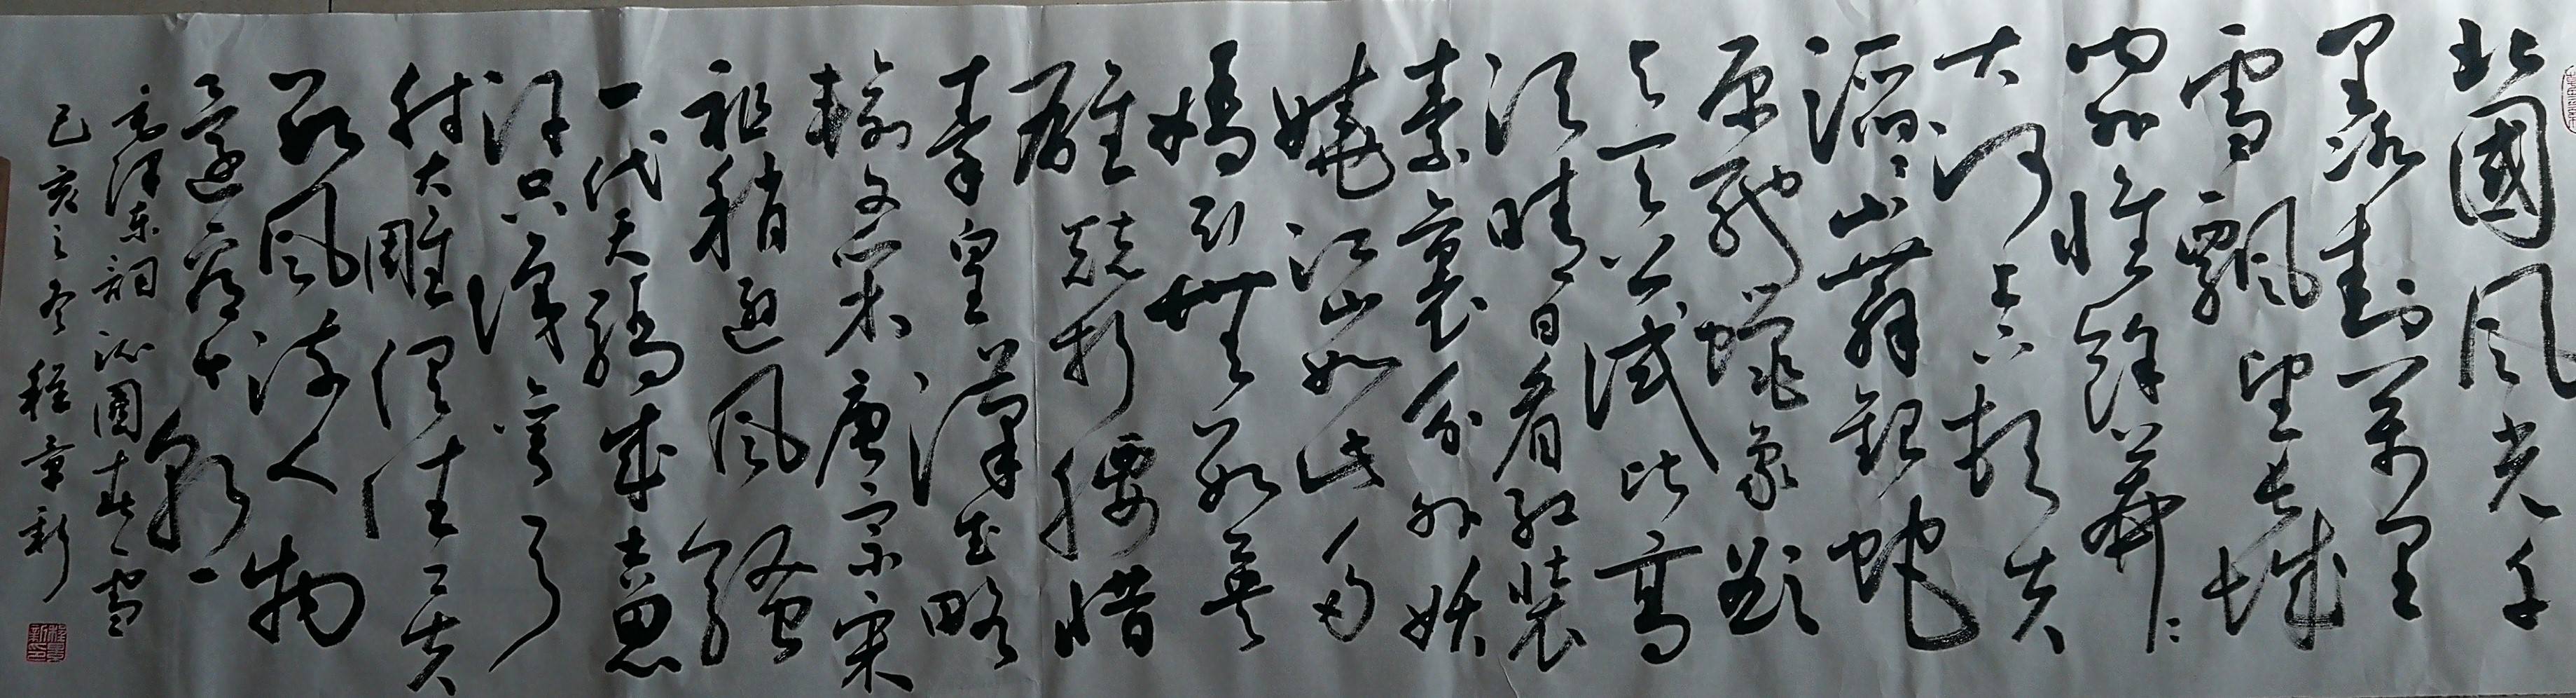 北國風光千
里冰封萬里
雪飄望長城
內外惟餘莽々
大河上下頓失
滔々山舞銀蛇
原馳蠟象欲
与天公試比高
須晴日看紅裝
素裹分外妖
嬈江山如此多
嬌引無數英
雄競折腰惜
秦皇漢武略
輸文采唐宗宋
祖稍遜風騷
一代天驕成吉思
汗只識彎弓
射大雕俱往矣
數風流人物
還看今朝
毛澤東詞沁園春雪
己亥之冬程章新